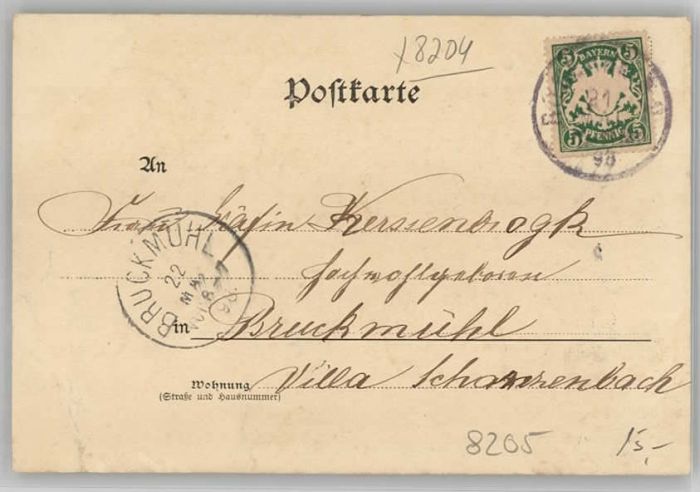 x8204
Postkarte
5 BAYERN 5
5 PFENNIG 5
21
98
An
Frau Gräfin Kerssenbrogk
BRUCKMÜHL
22
hochwohlgeboren
in Bruckmühl
Wohnung
(Straße und Hausnummer)
Villa Scharrenbach
8205
15,-